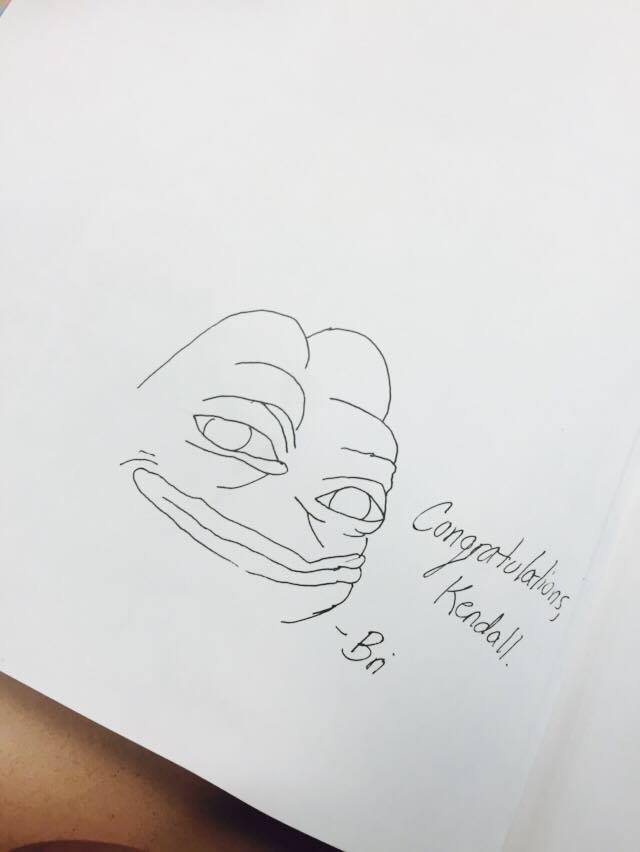 Congratulations,
Kendall.
-Bri